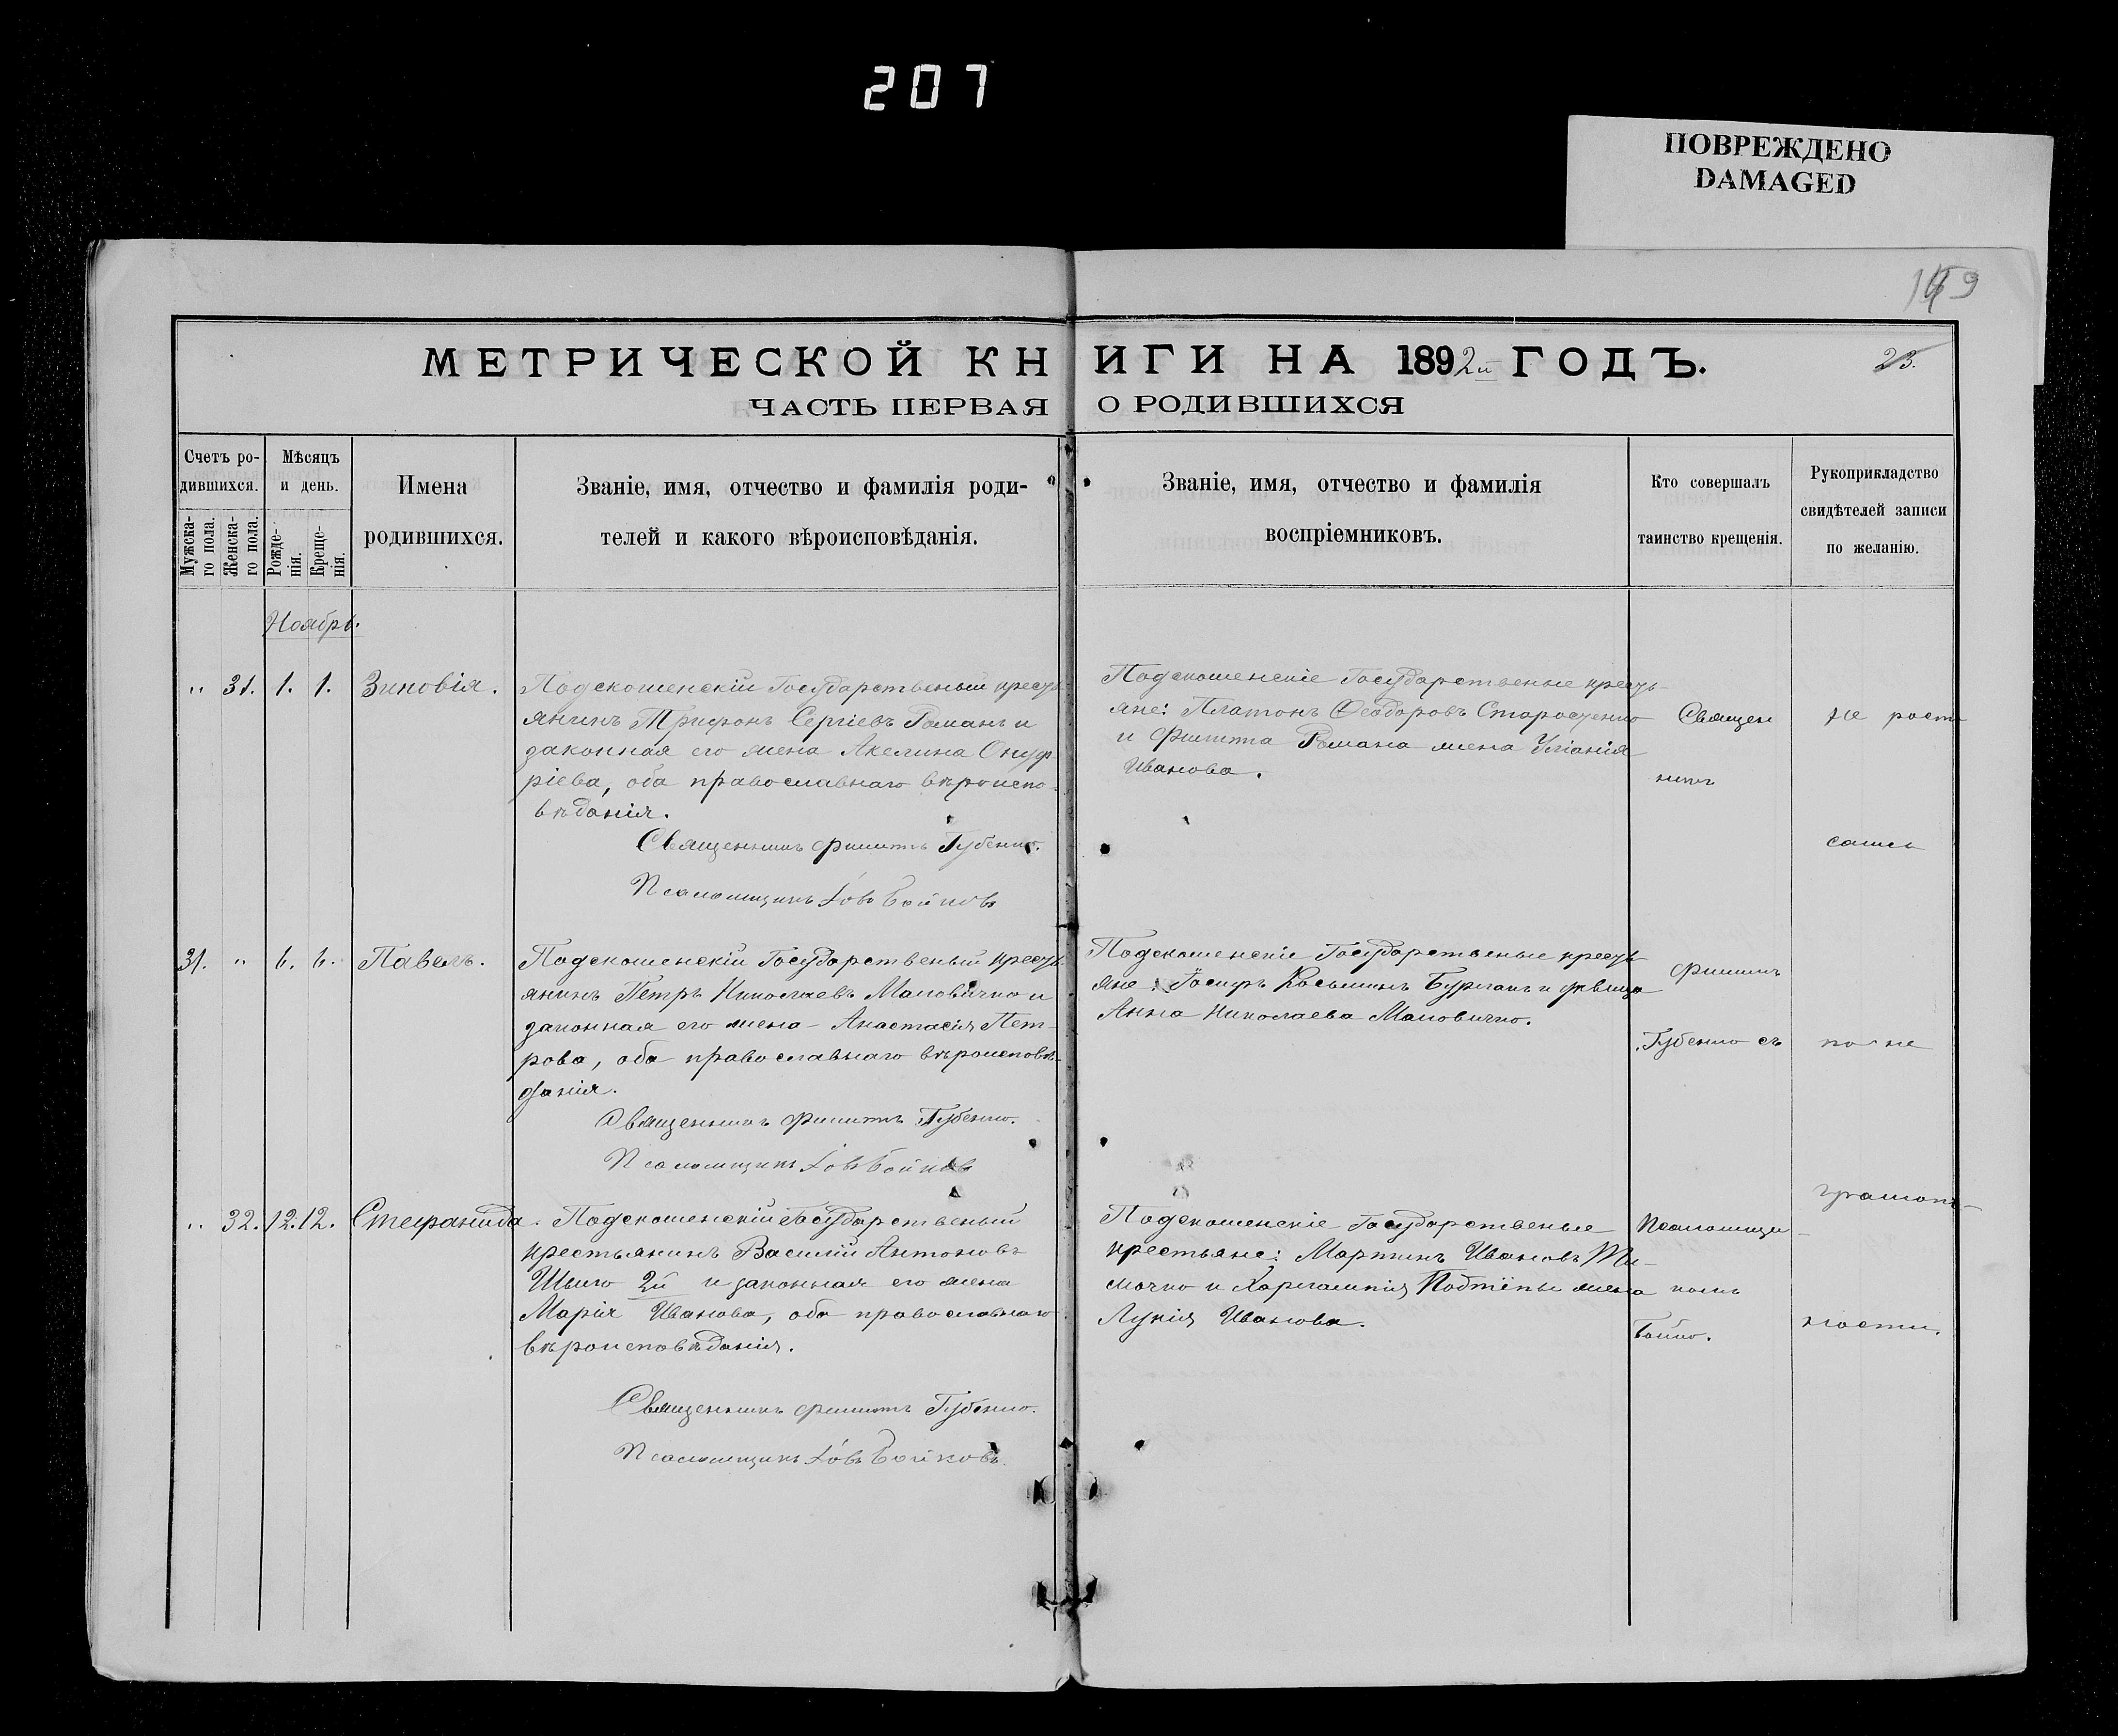 207
ПОВРЕЖДЕНО
DAMAGED
МЕТРИЧЕСКОЙ КНИГИ НА 1892й ГОДЪ.
23.
ЧАСТЬ ПЕРВАЯ О РОДИВШИХСЯ
Счетъ ро-
дившихся.
Мужска-
го пола.
Женска-
го пола.
Мѣсяцъ
и день.
Рожде-
нія.
Креще-
нія.
Имена
родившихся.
Званіе, имя, отчество и фамилія роди-
телей и какого вѣроисповѣданія.
Званіе, имя, отчество и фамилія
воспріемниковъ.
Кто совершалъ
таинство крещенія.
Рукоприкладство
свидѣтелей записи
по желанію.
Ноябрь.
" 31. 1. 1. Зиновія.
Подскошенскій Государственый кресть-
янинъ Трифонъ Сергіевъ Романъ и
законная его жена Акелина Онуф-
ріева, оба православнаго вѣроиспо-
вѣданія.
Священникъ Филиппъ Губенко.
Псаломщикъ Іовъ Бойковъ
Подскошенскіе Государственые кресть-
яне: Платонъ Ѳеодоровъ Старосченко
и Филиппа Романа жена Уліанія
Иванова.
31. " 6. 6. Павелъ.
Подскошенскій Государственый кресть-
янинъ Петръ Николаевъ Маловичко и
законная его жена - Анастасія Пет-
рова, оба православнаго вѣроисповѣ-
данія.
Священникъ Филиппъ Губенко.
Псаломщикъ Іовъ Бойковъ
Подскошенскіе Государственые кресть-
яне: Іосифъ Косьминъ Бурланъ и дѣвица
Анна Николаева Маловичко.
" 32. 12. 12. Стефанида.
Подскошенскій Государственый
крестьянинъ Василій Антоновъ
2й и законная его жена
Марія Иванова, оба православнаго
вѣроисповѣданія.
Священникъ Филиппъ Губенко.
Псаломщикъ Іовъ Бойковъ.
Подскошенскіе Государственые
крестьяне: Мартинъ Ивановъ Ти-
мочко и Харлампія жена
Лукія Иванова.
Священ
никъ
Филиппъ
Губенко съ
Псаломщи-
комъ
Бойко.
Не роспи
сались
по не
грамот-
ности.